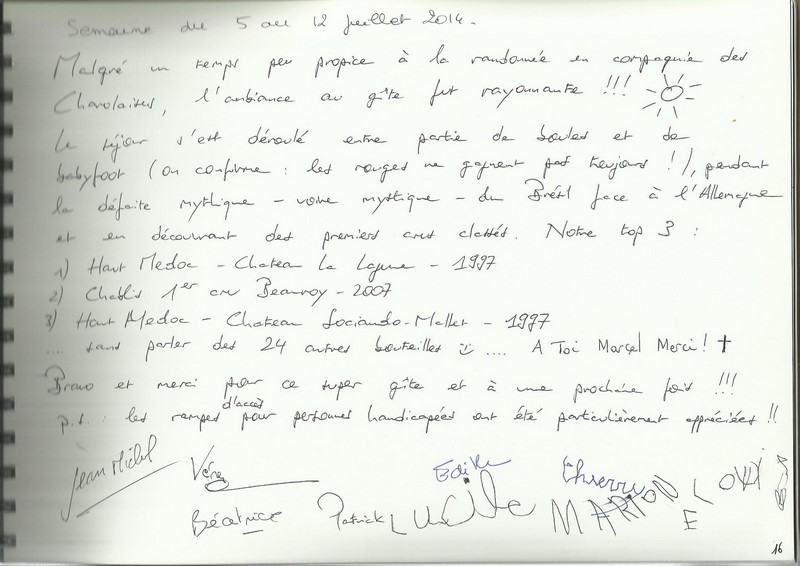 Semaine du 5 au 12 Juillet 2014.
Malgré un temps peu propice à la randonnée en compagnie des
Charolaises, l'ambiance au gîte fut rayonnante !!!
Le séjour s'est déroulé entre partie de boules et de
babyfoot (on confirme : les rouges ne gagnent pas toujours !), pendant
la défaite mythique - voire mystique - du Brésil face à l'Allemagne
et en découvrant des premiers crus classés. Notre top 3 :
1) Haut Medoc - Chateau La Lagune - 1997
2) Chablis 1er cru Beauroy - 2007
3) Haut Medoc - Chateau Sociando-Mallet - 1997
.... sans parler des 24 autres bouteilles .... A Toi Marcel Merci !
Bravo et merci pour ce super gîte et à une prochaine fois !!!
p.s. : les rampes d'accès pour personnes handicapées ont été particulièrement appréciées !!
Jean Michel
Edith
Thierry
Béatrice
Patrick
Lucile
MARION
16